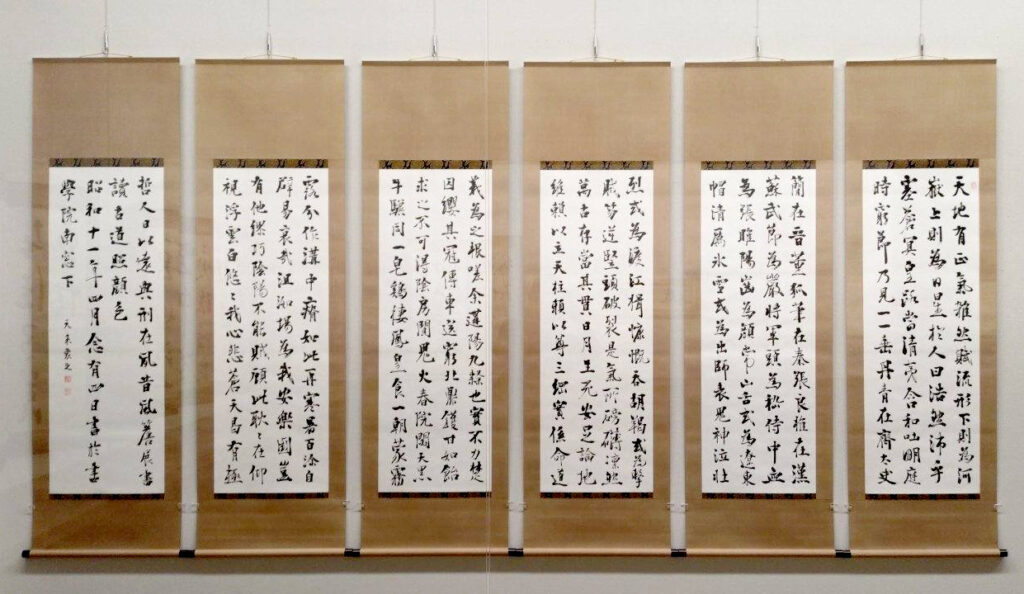 天地有正氣雜然賦流形下則為河
嶽上則為日星於人曰浩然沛乎
塞蒼冥皇路當清夷含和吐明庭
時窮節乃見一一垂丹青在齊太史
簡在晉董狐筆在秦張良椎在漢
蘇武節為嚴將軍頭為嵇侍中血
為張睢陽齒為顏常山舌或為遼東
帽清厲氷雪或為出師表鬼神泣壯
烈或為渡江楫慷慨吞胡羯或為擊
賊笏逆豎頭破裂是氣所磅礴凜
萬古存當其貫日月生死安足論地
維賴以立天柱賴以尊三綱實係命道
義為之根嗟余遘陽九隸也實不力楚
囚纓其冠傳車送窮北鼎鑊甘如飴
求之不可得陰房閴鬼火春院閟天黑
牛驥同一皁鷄棲鳳皇食一朝蒙霧
露分作溝中瘠如此再寒暑百沴自
辟易哀哉沮洳場為我安樂國豈
有他繆巧陰陽不能賊顧此耿々在仰
視浮雲白悠々我心悲蒼天曷有極
哲人日以遠典刑在夙昔風簷展書
讀古道照顏色
昭和十一年四月念有四日書於書
學院南窓下
天来象之